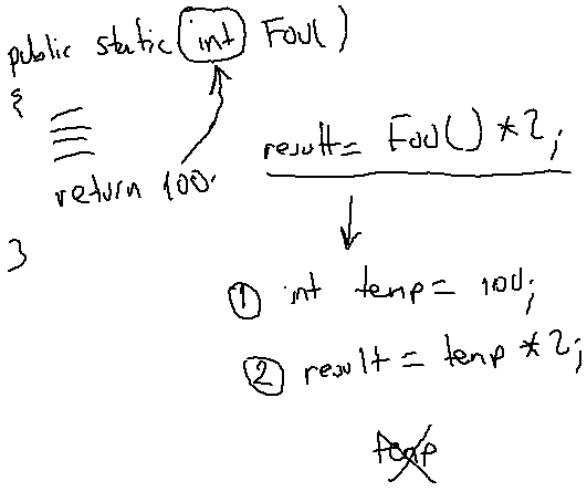 public static int Foo()
{
return 100;
}
result= Foo()*2;
① int temp= 100;
② result = temp *2;
temp